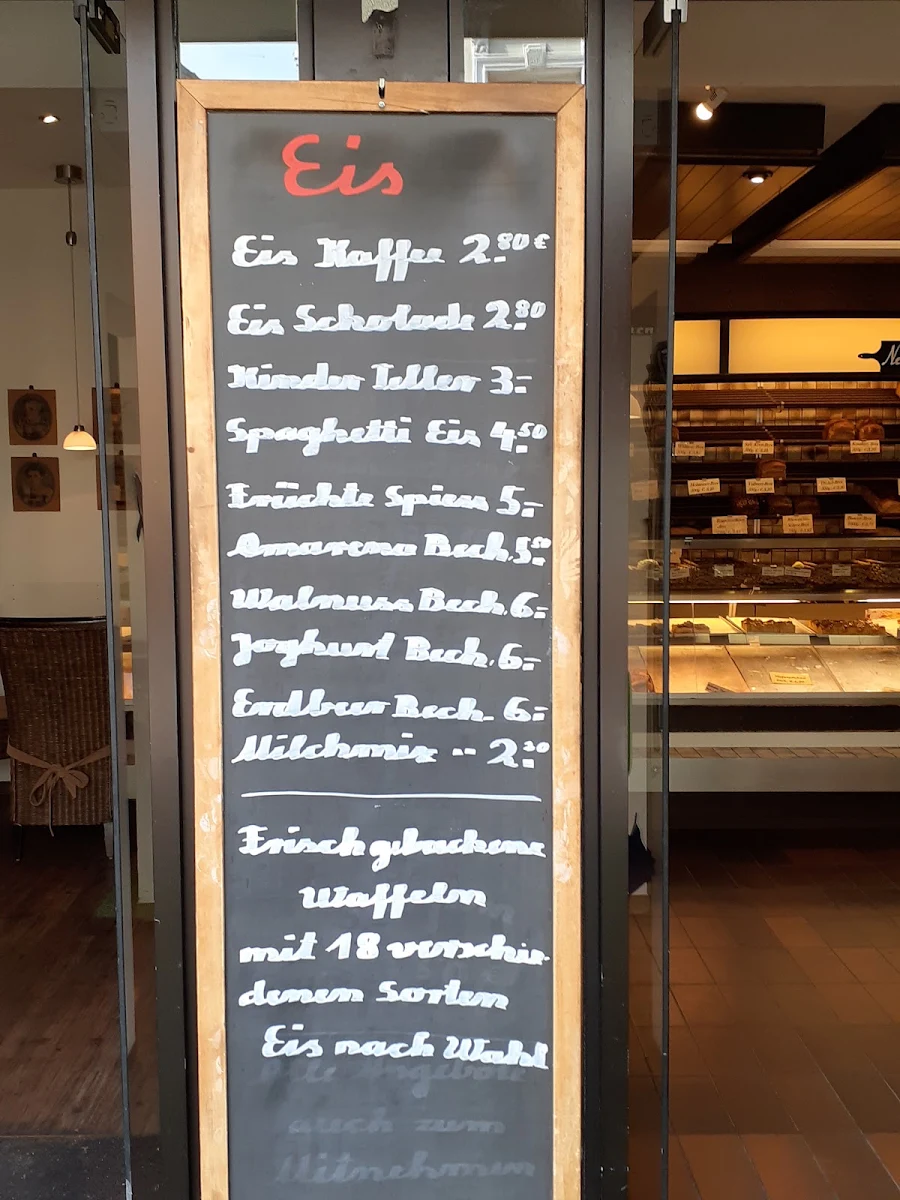 Eis
Eis Kaffee 2.80 €
Eis Schokolade 2.80
Kinder Teller 3.-
Spaghetti Eis 4.50
Früchte Spiess 5.-
Amarena Bech. 5.50
Walnuss Bech. 6.-
Joghurt Bech. 6.-
Erdbeer Bech. 6.-
Milchmix -- 2.30
Frisch gebackene
Waffeln
mit 18 verschie-
denen Sorten
Eis nach Wahl
Angebote
auch zum
Mitnehmen